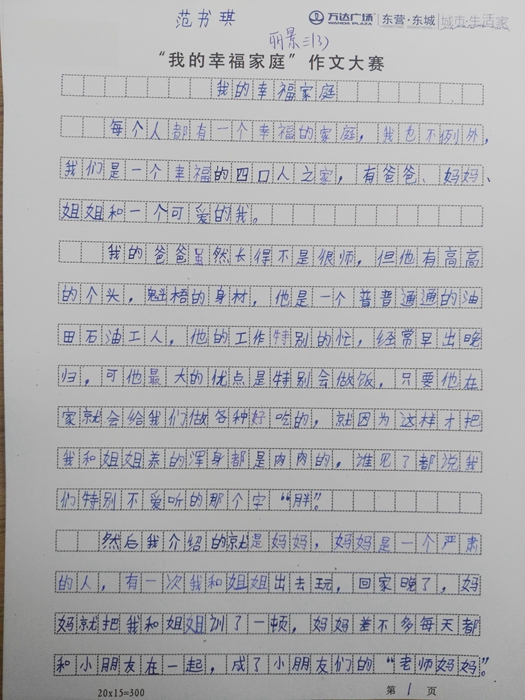 范书琪
万达广场 WANDA PLAZA 东营·东城 城市·生活家
丽景三(3)
“我的幸福家庭”作文大赛
我的幸福家庭
每个人都有一个幸福的家庭，我也不例外，
我们是一个幸福的四口人之家，有爸爸、妈妈、
姐姐和一个可爱的我。
我的爸爸虽然长得不是很师，但他有高高
的个头，魁梧的身材，他是一个普普通通的油
田石油工人，他的工作特别的忙，经常早出晚
归，可他最大的优点是特别会做饭，只要他在
家就会给我们做各种好吃的，就因为这样才把
我和姐姐养的浑身都是肉肉的，谁见了都说我
们特别不爱听的那个字“胖”。
然后我介绍的就是妈妈，妈妈是一个严肃
的人，有一次我和姐姐出去玩，回家晚了，妈
妈就把我和姐姐训了一顿，妈妈差不多每天都
和小朋友在一起，成了小朋友们的“老师妈妈”。
20x15=300
第1页